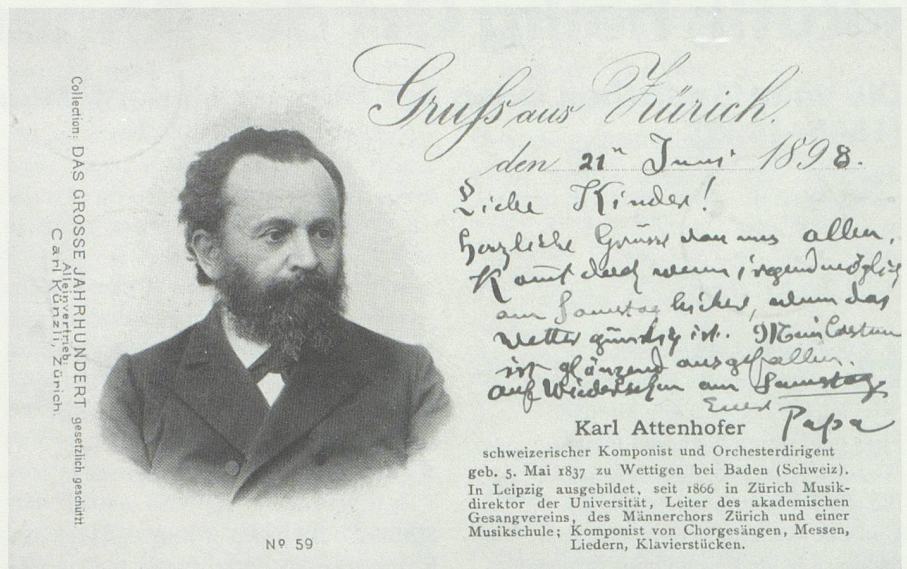 Collection: DAS GROSSE JAHRHUNDERT gesetzlich geschützt
Alleinvertrieb:
Carl Künzli, Zürich.
Gruss aus Zürich.
den 21ⁿ Juni 1898.
Liebe Kinder!
Herzliche Grüsse von uns allen.
Komt doch wenn irgend möglich
am Samstag, wenn das
Wetter günstig ist. Mein
ist glänzend ausgefallen.
auf Wiedersehn am Samstag
Euer
Papa
Karl Attenhofer
schweizerischer Komponist und Orchesterdirigent
geb. 5. Mai 1837 zu Wettigen bei Baden (Schweiz).
In Leipzig ausgebildet, seit 1866 in Zürich Musik-
direktor der Universität, Leiter des akademischen
Gesangvereins, des Männerchors Zürich und einer
Musikschule; Komponist von Chorgesängen, Messen,
Liedern, Klavierstücken.
Nº 59